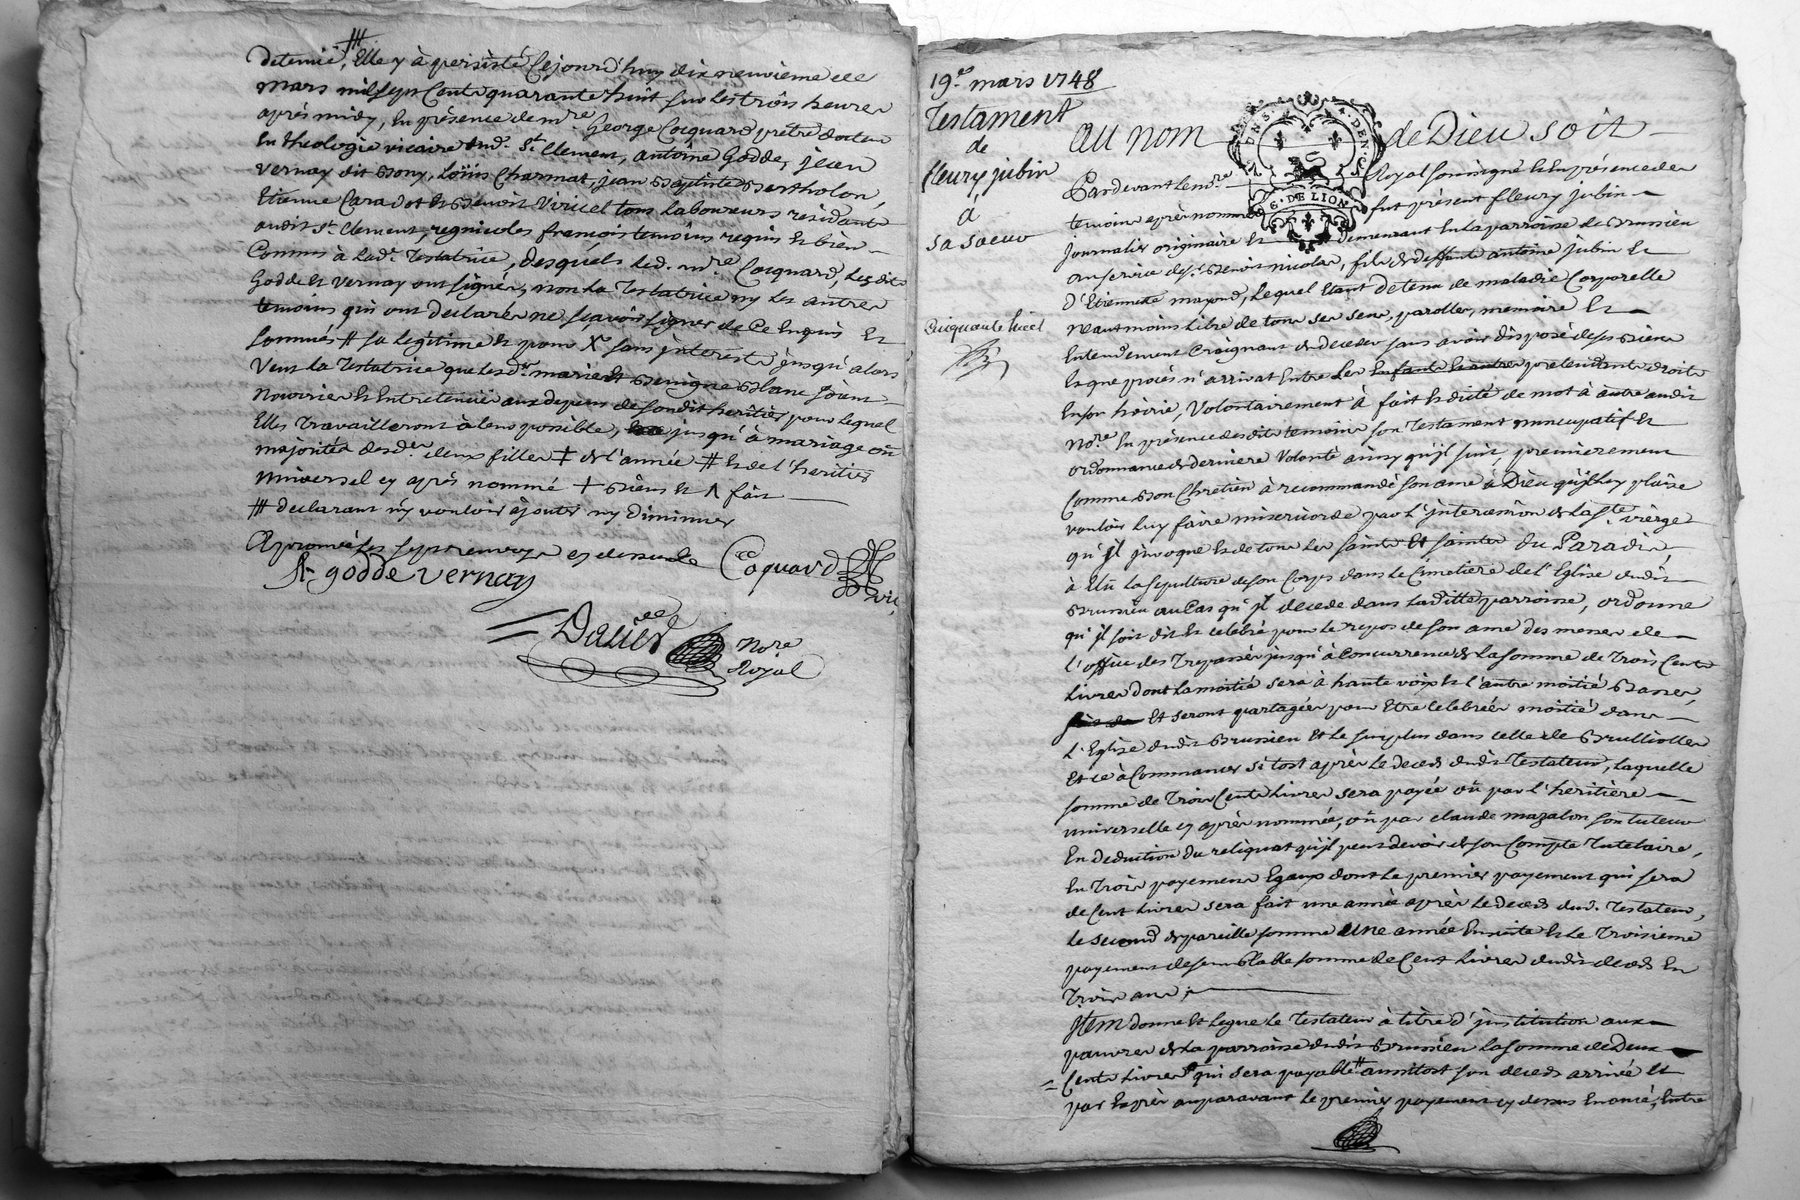 determiné, ⧻ Elle y à persisté Cejourd'huy dix neuvieme de
mars mil sept Cent quarante huit sur les trois heures
après midy, En présence de mre George Cocquard prêtre docteur
En theologie vicaire dud. St Clement, antoine Godde, jean
vernay dit Bony, Loüis Charmat, jean Baptiste Bertholon,
Etienne Caradot et Benoit Viricel tous Laboureurs résidants
audit St Clement, regnicoles francois temoins requis et bien
Connus à Lad. Testatrice, desquels led. mre Cocquard, Lesdits
Godde et vernay ont signés, non La Testatrice ny les autres
temoins qui ont declarés ne sçavoir signer de Ce Enquis Et
sommés # sa légitime et pour X sans jnterests jusqu'alors
Veut la Testatrice que lesd. marie et Benigne Blanc soient
Nourries et Entretenües aux depens de sondit heritier pour lequel
Elles Travailleront à leur possible, jusqu'à mariage où
majorités desd. deux filles ‡ de l'année # et de l'heritier
universel cy après nommé + Biens et ʌ fait
⧻ declarant n'y vouloir ajouter ny diminuer
Approuvé les sept renvoys cy dessus
Cocquard vic.
A godde vernay
Daüier Nore
Royal
19e mars 1748
Testament
de
fleury jubin
à
sa soeur
Au nom de Dieu soit
Pardevant le nore Royal soussigné et En présence des
temoins après nommés fut présent fleury jubin
journalier originaire et demeurant En la parroisse de Brussieu
au service de sr Benoit nicolas, fils de deffunts antoine jubin et
d'Etiennette mayoud, Lequel Etant detenu de maladie Corporelle
neautmoins Libre de tous ses sens, parolles, memoire Et
Entendement Craignant de deceder sans avoir disposé de ses Biens
Et que procès n'arrivat Entre Les Enfants Et autres prétendants droits
En son hoirie, Volontairement à fait et dicté de mot à autre audit
Nore En présence desdits temoins son Testament nuncupatif Et
ordonnance de derniere Volonté ainsy qu'jl suit, premierement
Comme Bon Chretien à recommandé son ame à Dieu qu'jl luy plaise
vouloir luy faire misericorde par l'jntercession de La Ste vierge
qu'jl jnvoque et de tous Les saints et saintes du Paradis,
à Elû La sepulture de son Corps dans Le Cimetiere de l'Eglise dudit
Brussieu au Cas qu'jl decede dans Ladite parroisse, ordonne
qu'jl soit dit et celebré pour Le repos de son ame des messes de
l'office des Trepassés jusqu'à Concurrence de La somme de Trois Cents
Livres dont La moitié sera à haute voix et l'autre moitié Basses,
Et seront partagées pour Etre Celebrées moitié dans
L'Eglise dudit Brussieu et Le surplus dans celle de Brulliolles
Et ce à Commancer si tost après Le deceds dudit Testateur, Laquelle
somme de Trois Cents Livres sera payée où par l'heritière
universelle cy après nommée, où par claude mazalon son tuteur
En deduction du reliquat qu'jl peut devoir de son Compte Tutelaire,
En Trois payements Egaux dont Le premier payement qui sera
de Cent Livres sera fait une année après Le deceds dud. Testateur,
Le second de pareille somme une année Ensuite et Le Troisieme
payement de semblable somme de Cent Livres dudit deceds En
Trois ans ;
Jtem donne et legue Le Testateur à titre d'jnstitution aux
pauvres de La parroisse dudit Brussieu La somme de Deux
Cents Livres qui sera payable # aussitost son deceds arrivé Et
par Exprès auparavant Le premier payement cy dessus Enoncé, Entre